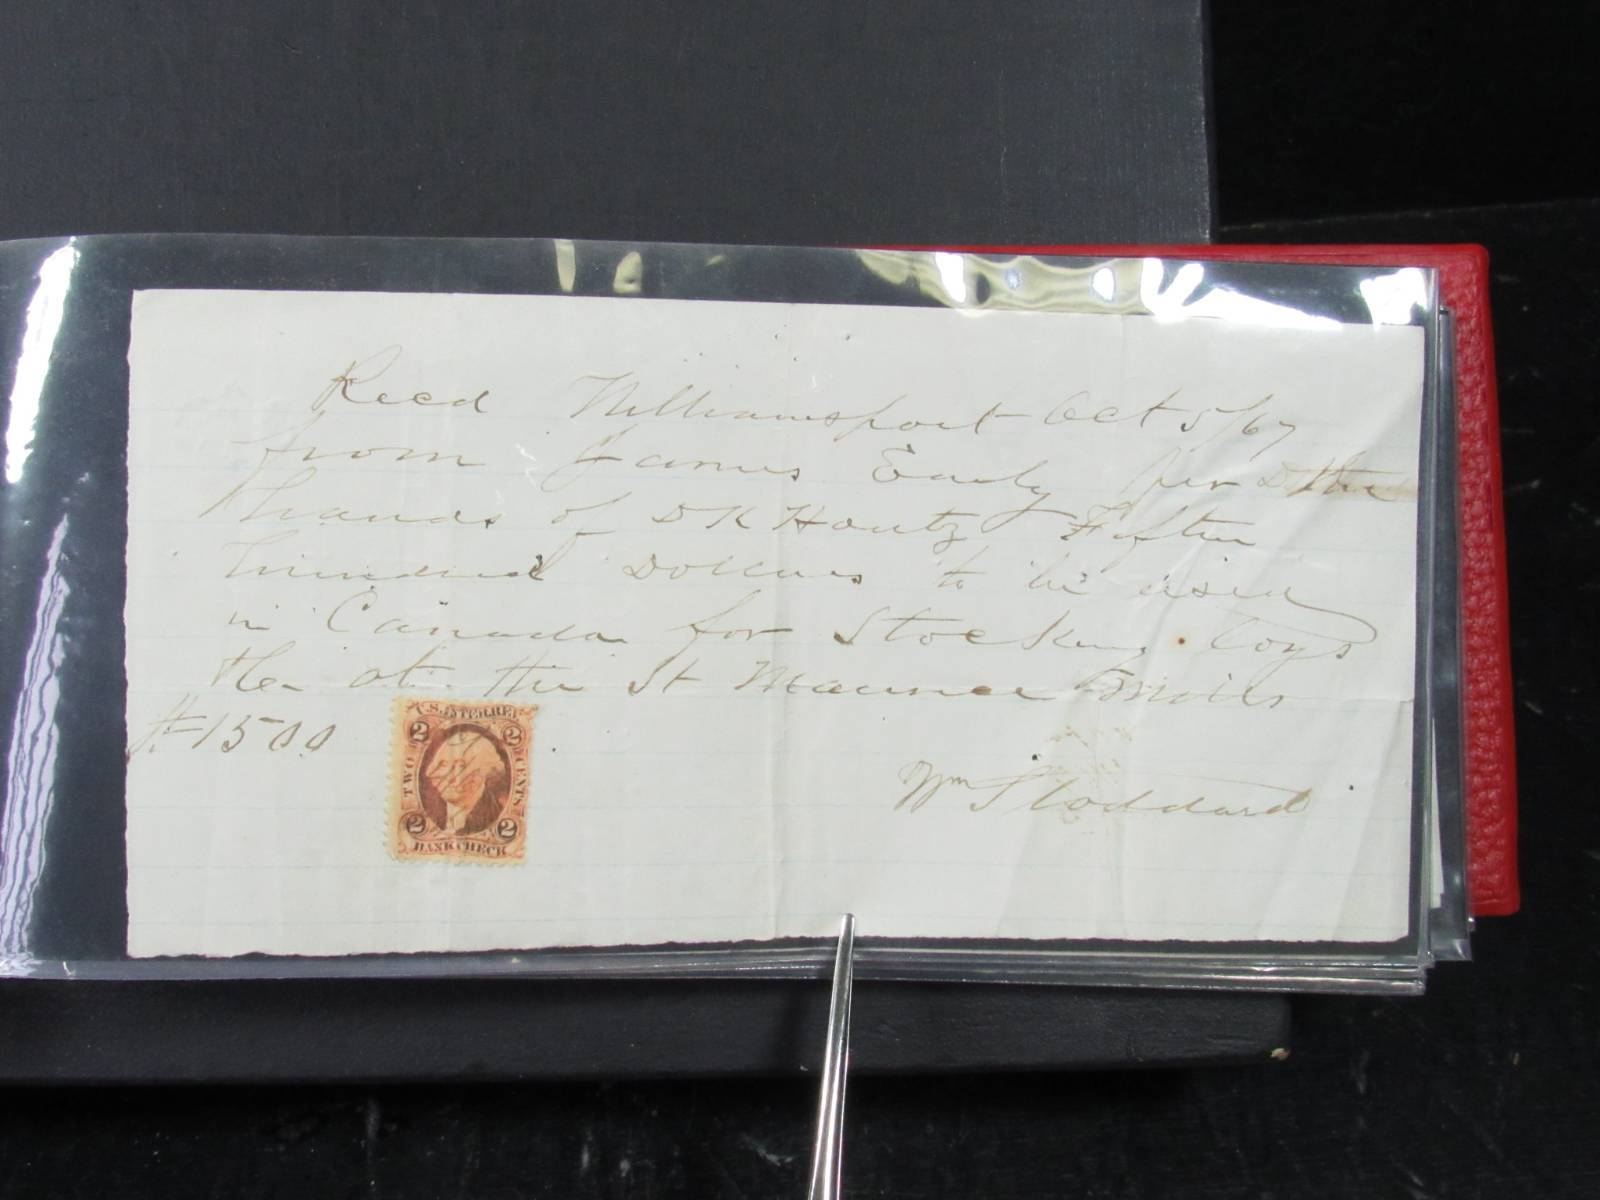 Recd Williamsport Oct 5/67
from James Early per the
hands of D K Houtz Fifteen
hundred Dollars to be used
in Canada for Stocking
at the St Maurice
$1500
U.S. INTER. REV.
2 2
TWO CENTS
2 2
BANK CHECK
Wm Stoddard